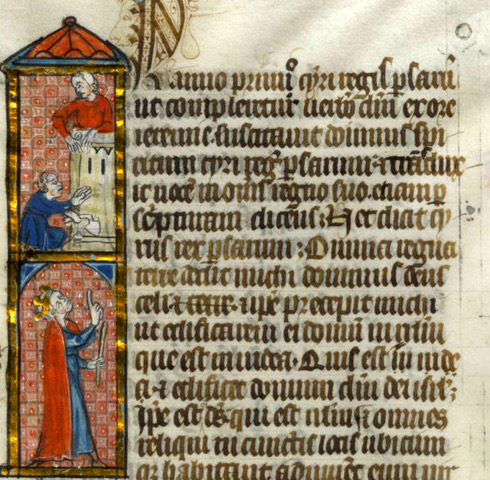 In anno primo cyri regis psarū
ut compleretur ūbū dñi ex ore
ieremie. suscitauit dominus spi
ritum cyri reg psarum. & tradux
it uocē in omni regno suo. etiam p
scripturam dicens; Hec dicit cy
rus rex psarum; Omnia regna
terre dedit michi dominus deus
celi & terre. & ipse precepit michi
ut edificarem ei domū in ierlm
que est in iudea. Quis est in iude
a. & edificet domum dñi dei isrl;
Ipse est ds qui est in ierl. & omnes
reliqui in cunctis locis ubicum
q; habitant adiuuēt eum uir